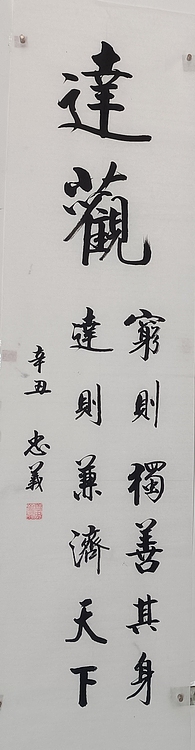 達觀
窮則獨善其身
達則兼濟天下
辛丑 忠義